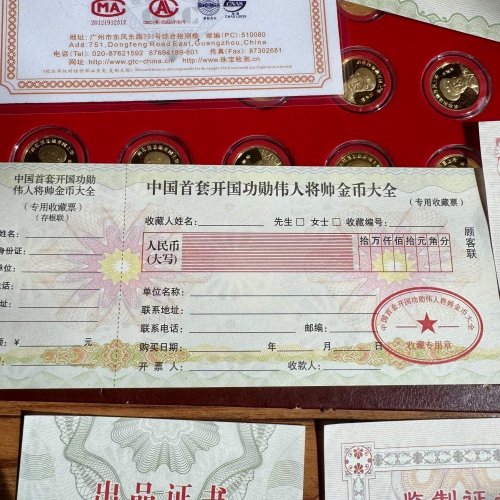 MA
2012191231Z
AL
CNAS
地址：广州市东风东路751号综合检测楼 邮编(PC)：510080
Add: 751, Dongfeng Road East, Guangzhou, China
电话(TEL)：020-87621592 87694189-601 传真(Fax)：87302681
网址：http://www.gtc-china.cn http://www.珠宝检测.cn
中国首套开国功勋
伟人将帅金币大全
(专用收藏票)
(存根联)
姓名：
身份证：
单位：
地址：
电话：
额：￥ 元
中国首套开国功勋伟人将帅金币大全
(专用收藏票)
收藏人姓名： 先生□ 女士□ 收藏编号：
人民币
(大写)
拾万仟佰拾元角分
顾客联
单位名称：
联系地址：
联系电话： 邮编：
购买日期： 年 月 日
开票人： 收款人：
中国首套开国功勋伟人将帅金币大全
收藏专用章
出品证书
监制证